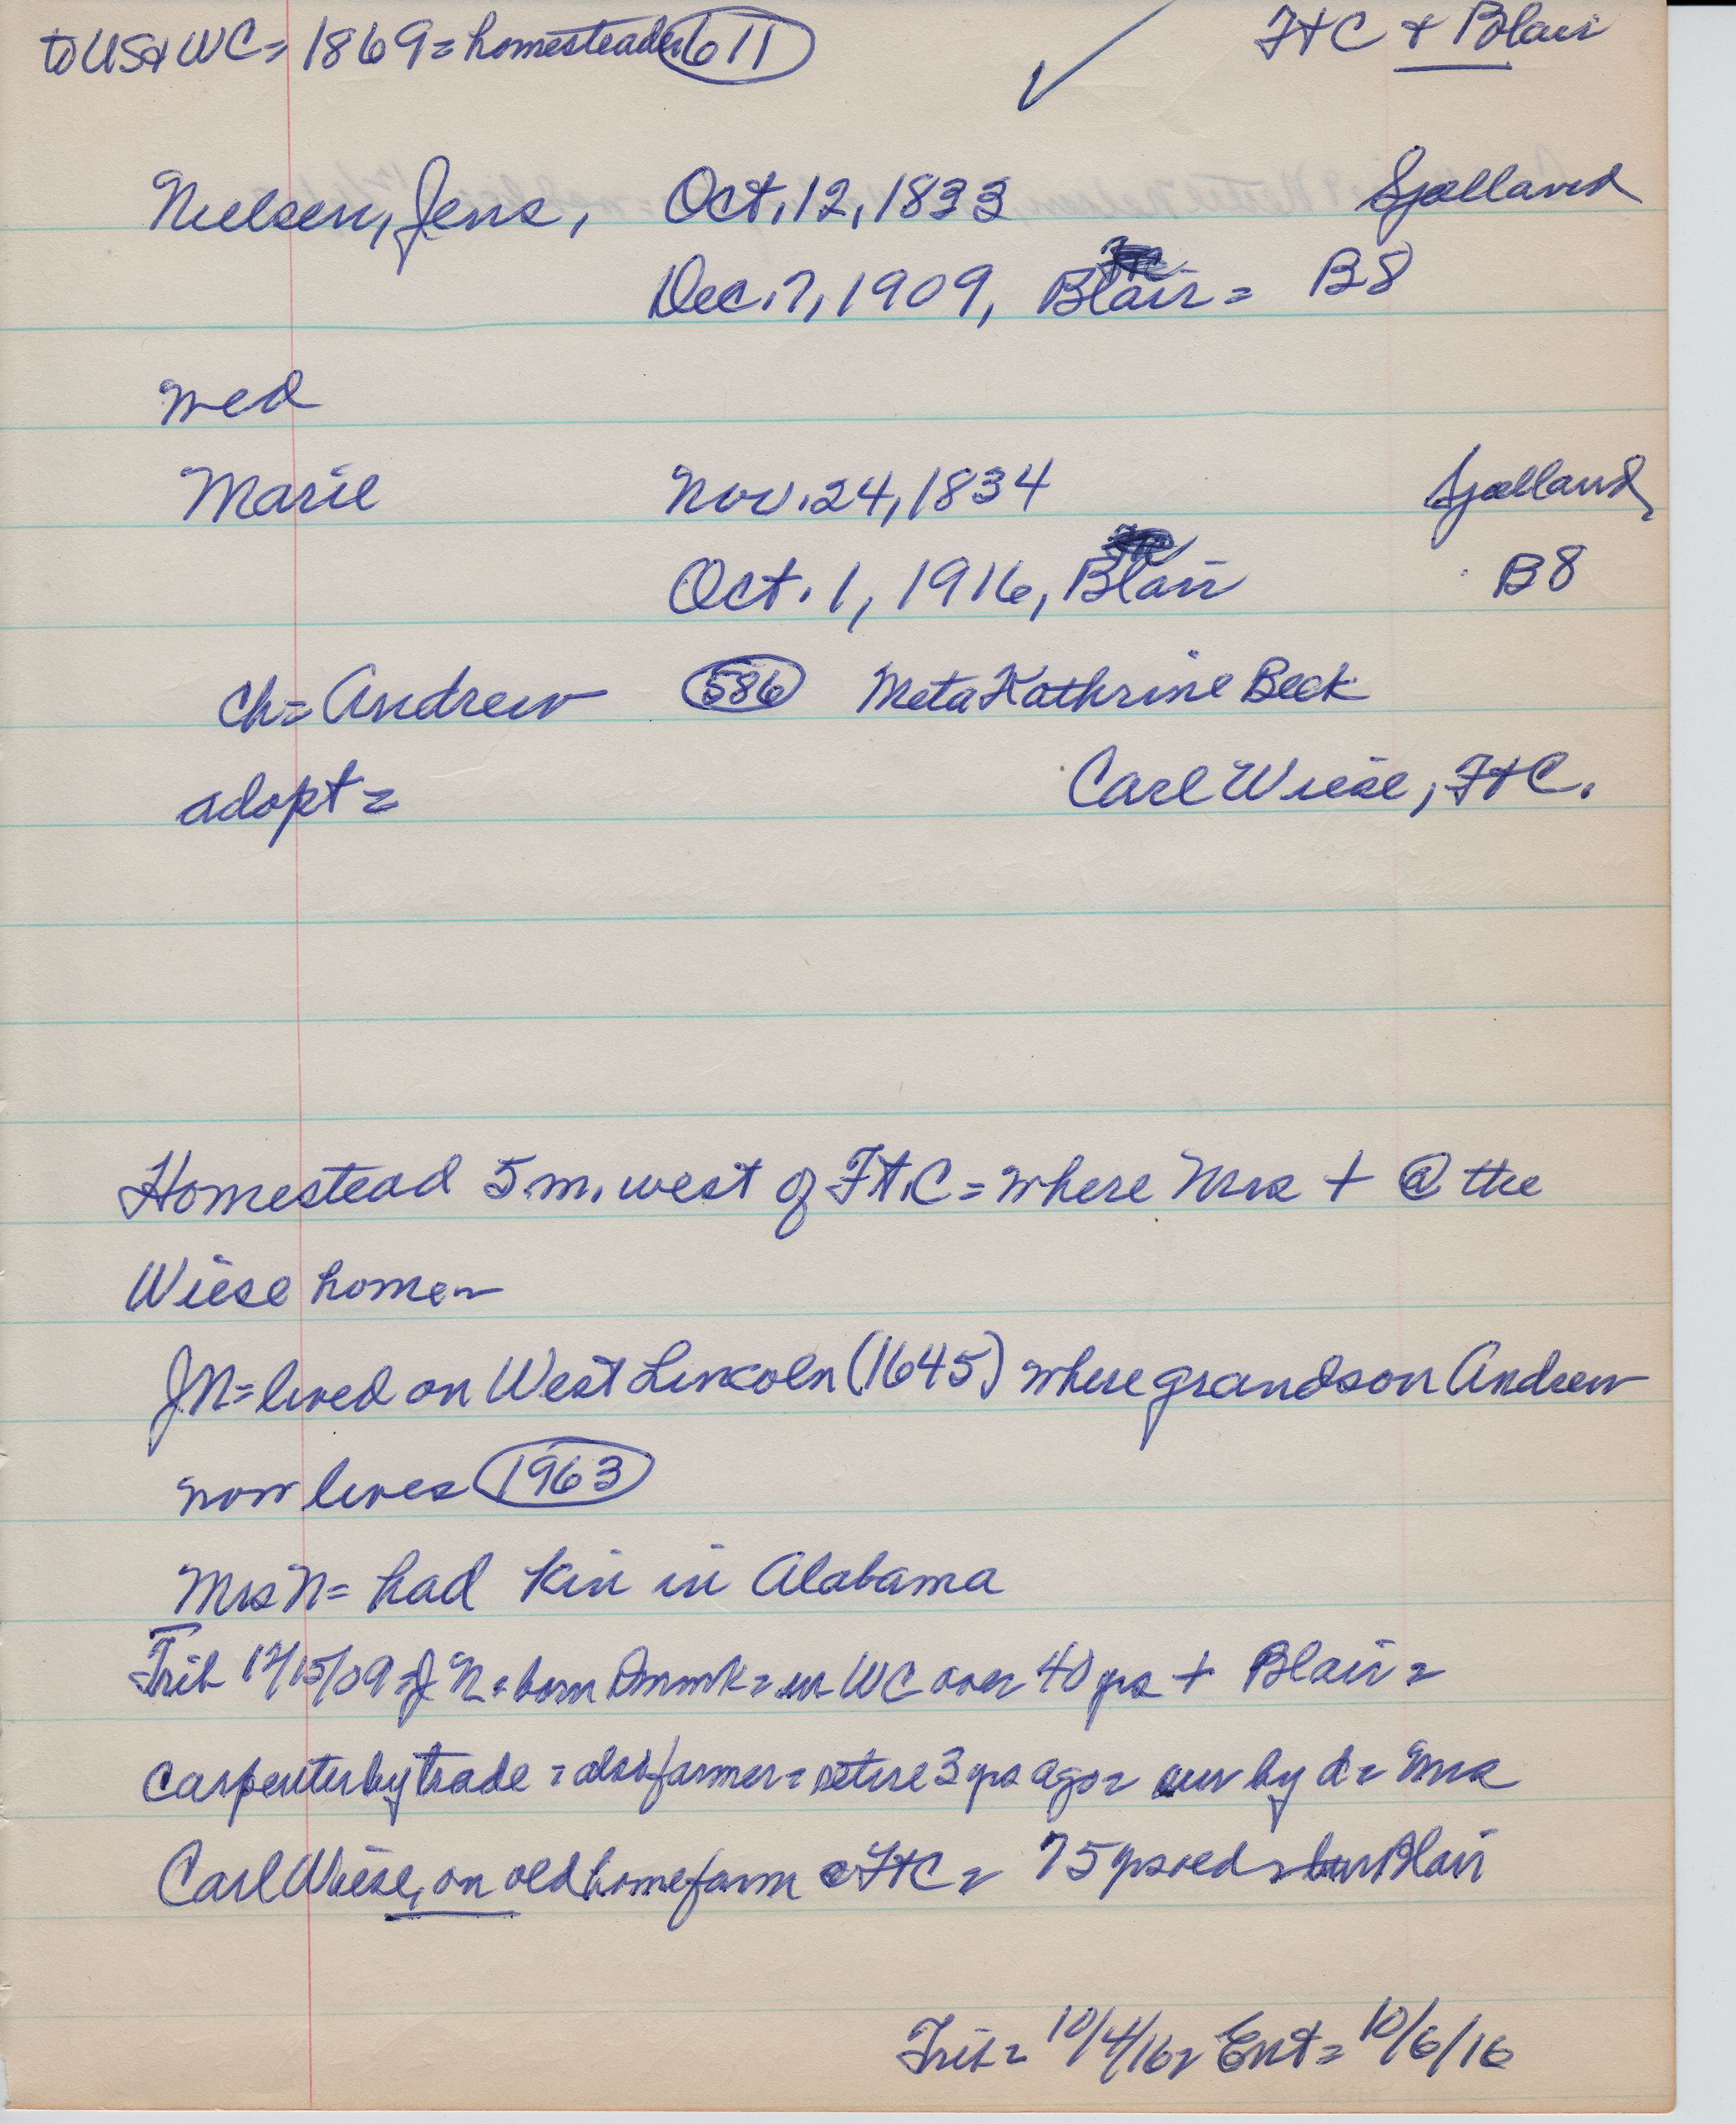 to US & WC = 1869 = homesteader 611 ✓ Ft C + Blair
Nielsen, Jens, Oct. 12, 1833 Sjælland
Dec. 7, 1909, Blair = B8
wed
Marie Nov. 24, 1834 Sjælland
Oct. 1, 1916, Blair B8
ch = Andrew 586 Meta Kathrine Beck
adopt = Carl Wiese, Ft C.
Homestead 5 m. west of Ft. C = where Mrs + @ the
Wiese home
JN = lived on West Lincoln (1645) where grandson Andrew
now lives 1963
Mrs N = had kin in Alabama
Trib 12/15/09 = J N = born Dnmk = in WC over 40 yrs + Blair =
carpenter by trade = also farmer = retire 3 yrs ago = sur by d = Mrs
Carl Wiese, on old home farm Ft C = 75 yrs old = bur Blair
Trib = 10/4/16 = Ent = 10/6/16